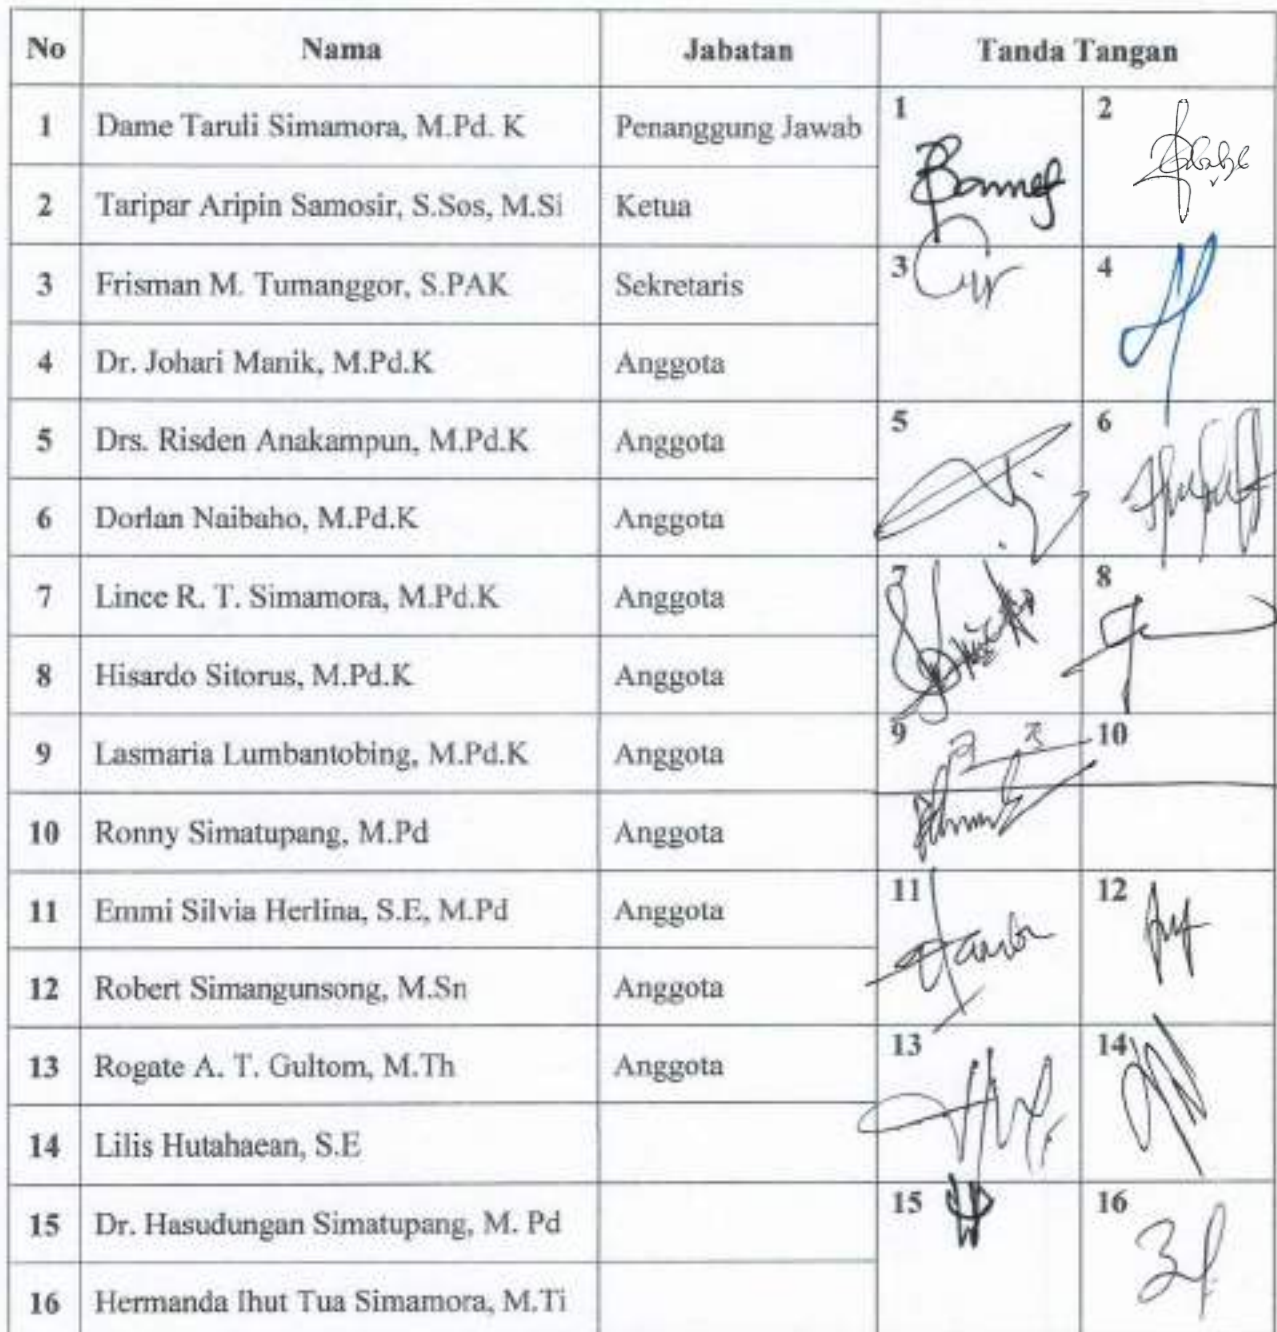 No Nama Jabatan Tanda Tangan
1 Dame Taruli Simamora, M.Pd. K Penanggung Jawab 1 2
2 Taripar Aripin Samosir, S.Sos, M.Si Ketua
3 Frisman M. Tumanggor, S.PAK Sekretaris 3 4
4 Dr. Johari Manik, M.Pd.K Anggota
5 Drs. Risden Anakampun, M.Pd.K Anggota 5 6
6 Dorlan Naibaho, M.Pd.K Anggota
7 Lince R. T. Simamora, M.Pd.K Anggota 7 8
8 Hisardo Sitorus, M.Pd.K Anggota
9 Lasmaria Lumbantobing, M.Pd.K Anggota 9 10
10 Ronny Simatupang, M.Pd Anggota
11 Emmi Silvia Herlina, S.E, M.Pd Anggota 11 12
12 Robert Simangunsong, M.Sn Anggota
13 Rogate A. T. Gultom, M.Th Anggota 13 14
14 Lilis Hutahaean, S.E
15 Dr. Hasudungan Simatupang, M. Pd 15 16
16 Hermanda Ihut Tua Simamora, M.Ti